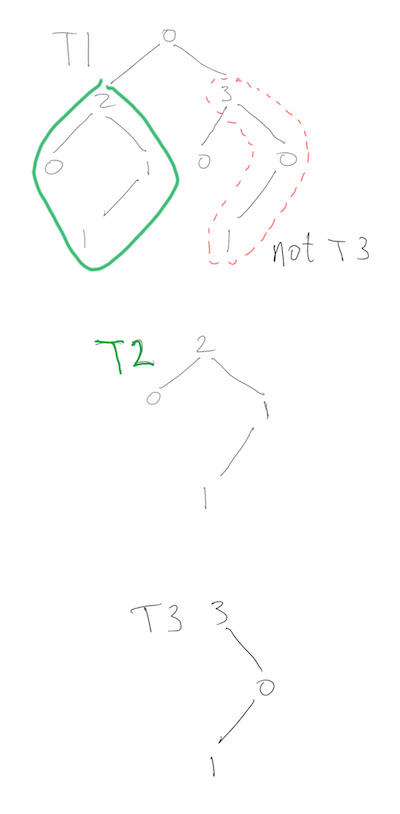 T1
0
2
3
0
1
0
0
1
1
not T3
T2
2
0
1
1
T3 3
0
1